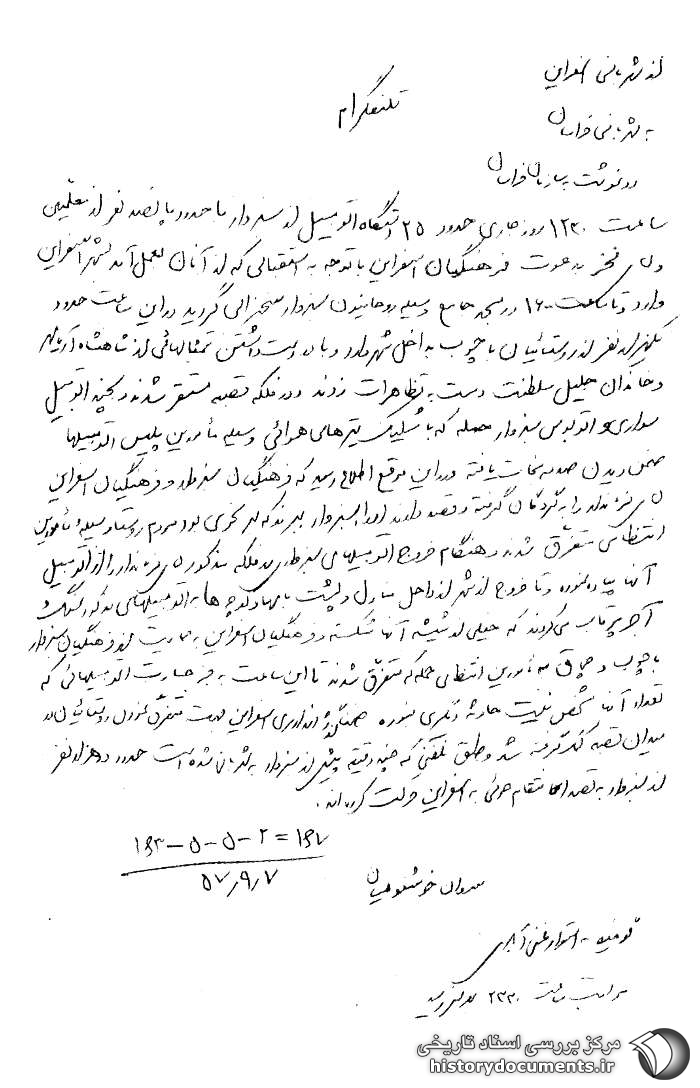 از شهربانی اسفراین
تلفنگرام
به شهربانی خراسان
رونوشت سازمان خراسان
ساعت ۱۲۳۰ روز جاری حدود ۲۵ دستگاه اتومبیل از سبزوار با حدود پانصد نفر از معلمین
و به دعوت فرهنگیان اسفراین با توجه به استقبالی که از آنان بعمل آمد بشهر اسفراین
وارد و تا ساعت ۱۶۰۰ در مسجد جامع وسیله روحانیون سبزوار سخنرانی گردید در این ساعت حدود
یکهزار نفر از روستائیان با چوب به داخل شهر وارد و با در دست داشتن تمثالهائی از شاهنشاه آریامهر
و خاندان جلیل سلطنت دست به تظاهرات زدند و در فلکه قصبه مستقر شدند و بچند اتومبیل
سواری و اتوبوس سبزوار حمله که با شلیک تیرهای هوائی وسیله مأمورین پلیس اتومبیلها
ضمن دیدن صدمه نجات یافته در این موقع اطلاع رسید که فرهنگیان سبزوار و فرهنگیان اسفراین
فرماندار را به گروگان گرفته و قصد دارند او را به سبزوار ببرند که مردم روستا وسیله مأمورین
انتظامی متفرق شدند و هنگام خروج اتومبیلهای سبزوار در فلکه مذکور فرماندار را از اتومبیل
آنها پیاده نموده و تا خروج از شهر از داخل منازل و پشت بامها و کوچه ها به اتومبیلهای مذکور سنگ
آجر پرتاب می‌کردند که خیلی از شیشه آنها شکسته و فرهنگیان اسفراین به حمایت از فرهنگیان سبزوار
با چوب و چماق به مأمورین انتظامی حمله که متفرق شدند تا این ساعت به جز خسارت اتومبیلهائی که
تعداد آنها مشخص نیست حادثه دیگری نبوده ضمناً از ژاندارمری اسفراین جهت متفرق نمودن روستائیان از
میدان قصبه کمک گرفته شد و طبق تلفنی که چند دقیقه پیش از سبزوار به شهربانی شده است حدود دو هزار نفر
از سبزوار به قصد انتقام جوئی به اسفراین حرکت کرده‌اند.
۱۶۳-۵-۵-۲ = ۱۶۷
۵۷٫۹٫۷
سروان
گوینده - استوار
ساعت ۲۳۳۰
مرکز بررسی اسناد تاریخی
historydocuments.ir